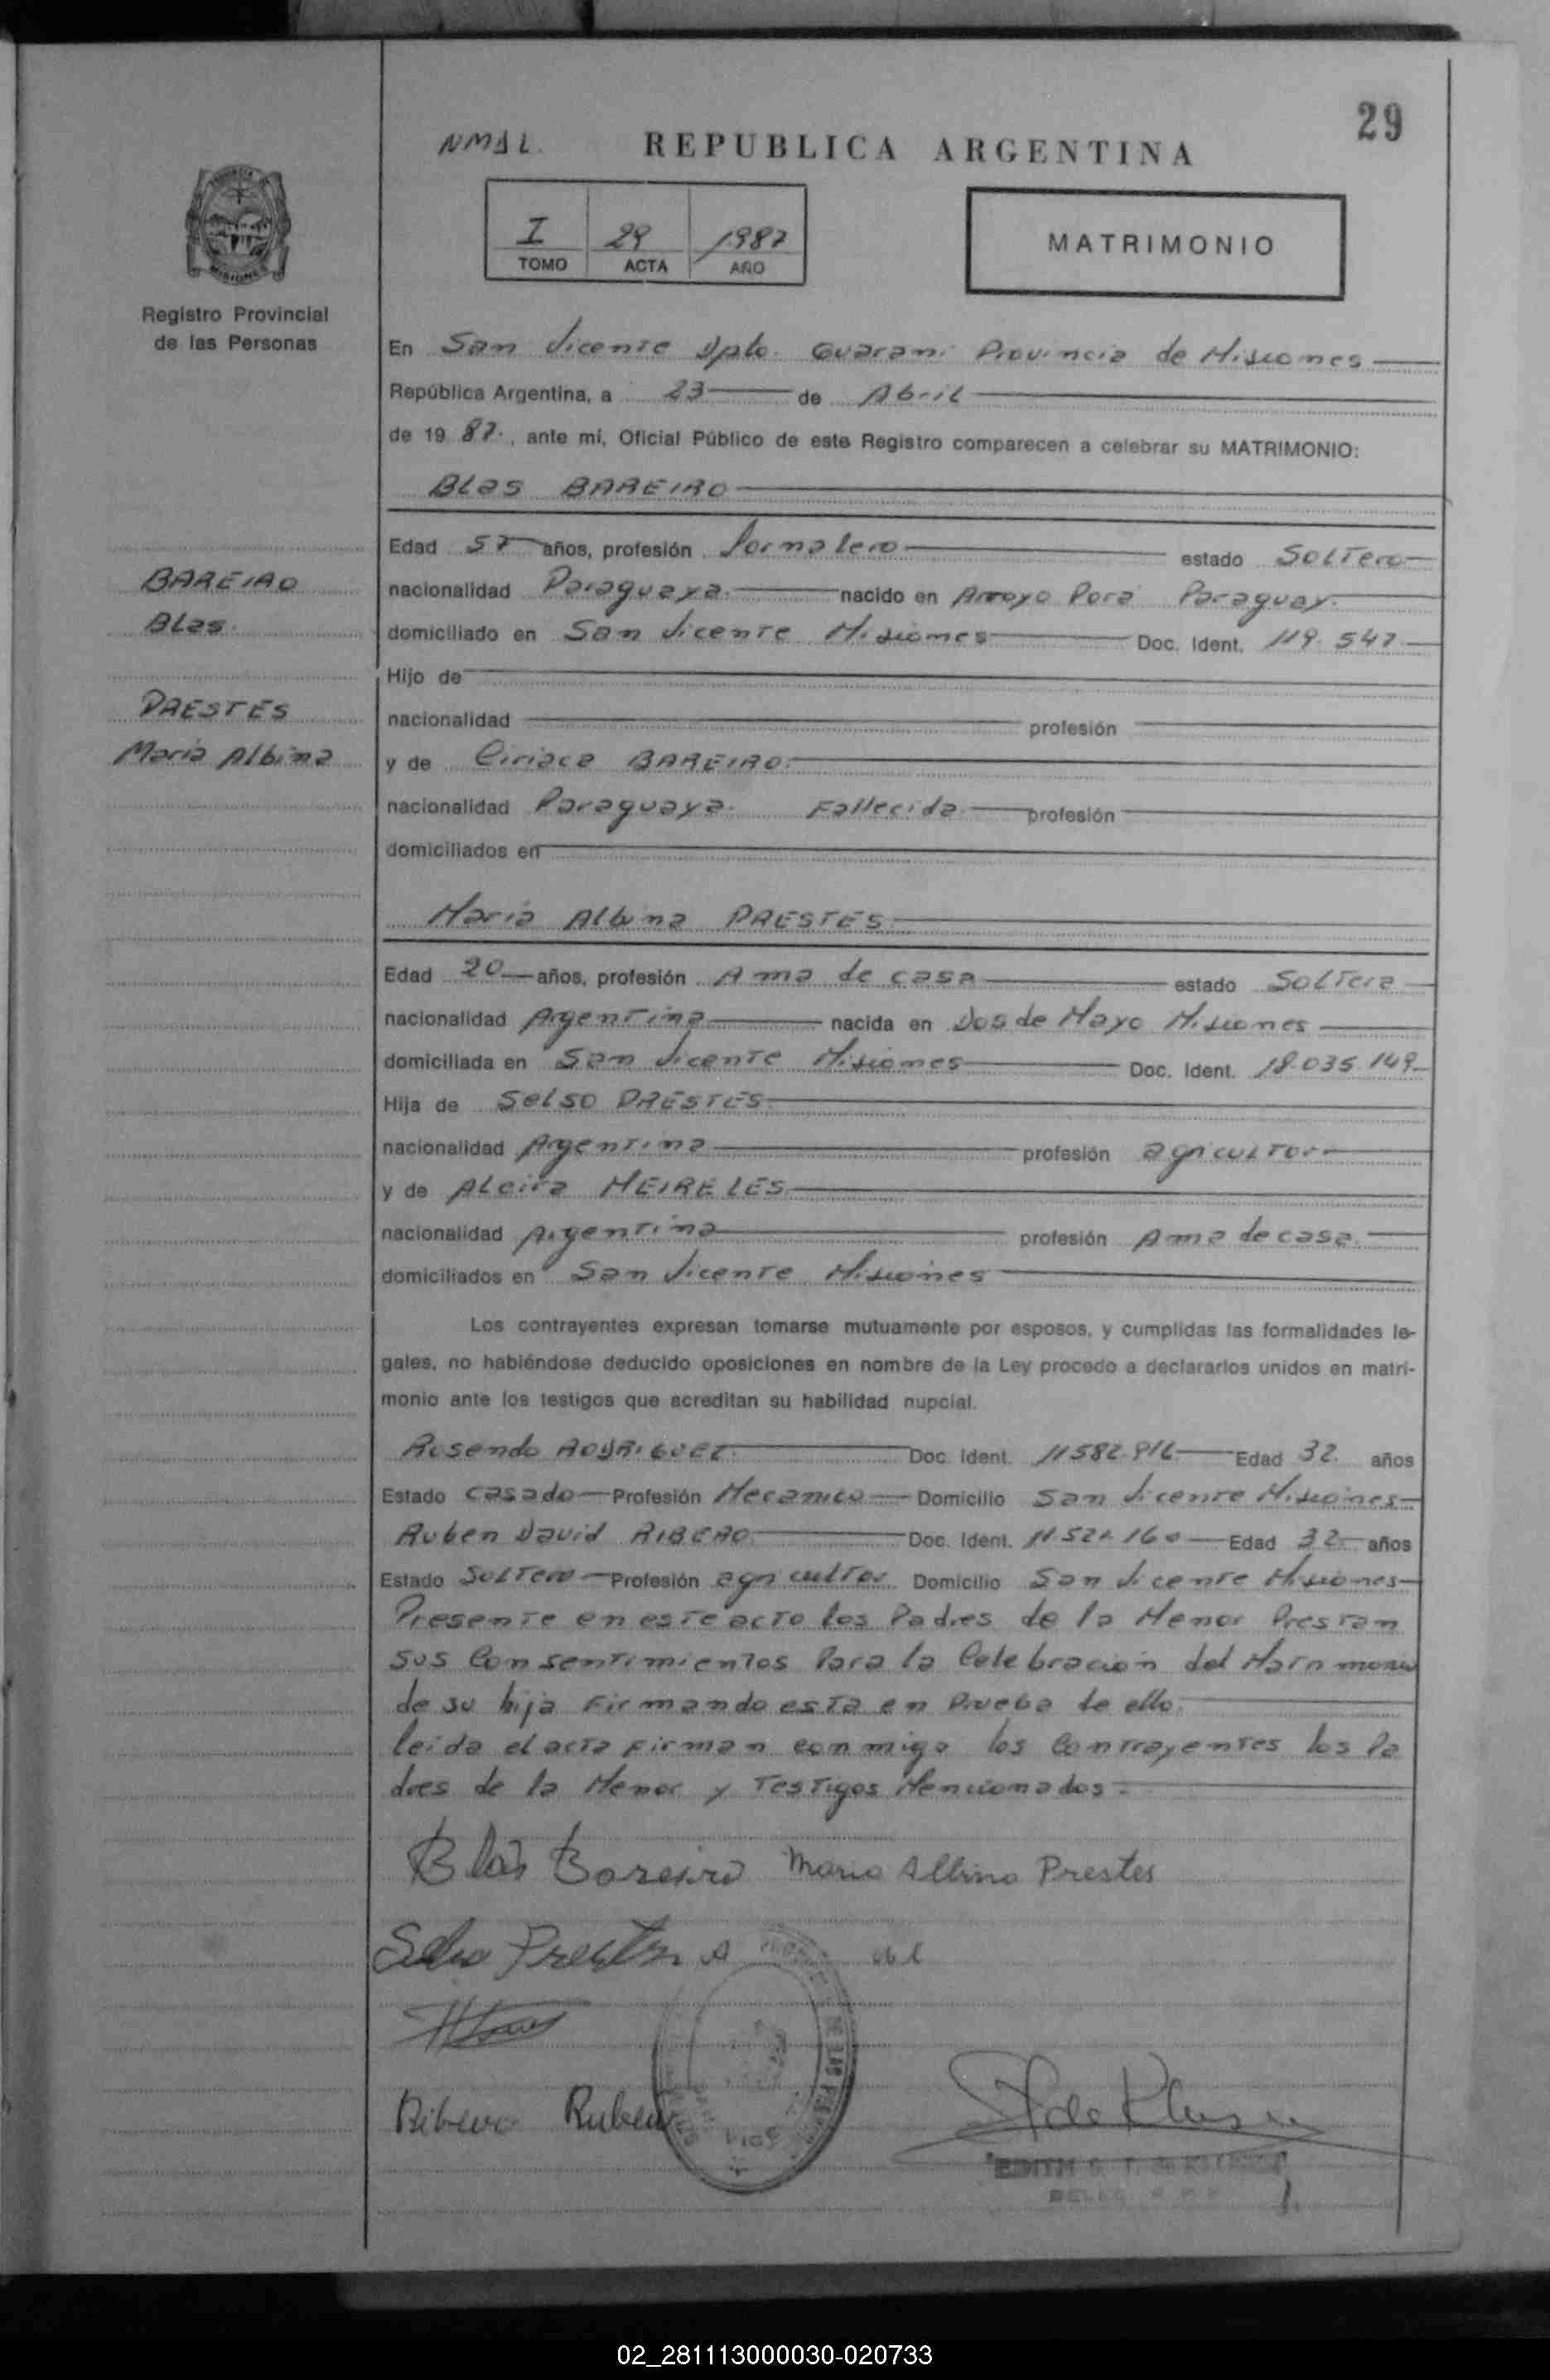 29
NMAL.
REPUBLICA ARGENTINA
PROVINCIA
MISIONES
Registro Provincial
de las Personas
I 29 1987
TOMO ACTA AÑO
MATRIMONIO
En San Vicente Dpto. Guaraní Provincia de Misiones
República Argentina, a 23 de Abril
de 19 87., ante mí, Oficial Público de este Registro comparecen a celebrar su MATRIMONIO:
Blas BAREIRO
Edad 57 años, profesión Jornalero estado Soltero
BAREIRO
nacionalidad Paraguaya. nacido en Arroyo Porá Paraguay.
Blas.
domiciliado en San Vicente Misiones Doc. Ident. 119.547
Hijo de
PRESTES
nacionalidad profesión
Maria Albina
y de Ciriaca BAREIRO.
nacionalidad Paraguaya. Fallecida profesión
domiciliados en
Maria Albina PRESTES
Edad 20 años, profesión Ama de casa estado Soltera
nacionalidad Argentina nacida en Dos de Mayo Misiones
domiciliada en San Vicente Misiones Doc. Ident. 18.035.149
Hija de Selso PRESTES
nacionalidad Argentina profesión agricultor
y de Alcira MEIRELES
nacionalidad Argentina profesión Ama de casa.
domiciliados en San Vicente Misiones
Los contrayentes expresan tomarse mutuamente por esposos, y cumplidas las formalidades le-
gales, no habiéndose deducido oposiciones en nombre de la Ley procedo a declararlos unidos en matri-
monio ante los testigos que acreditan su habilidad nupcial.
Rosendo RODRIGUEZ. Doc. Ident. Edad 32. años
Estado Casado Profesión Mecanico Domicilio San Vicente Misiones
Ruben David RIBERO Doc. Ident. Edad 32 años
Estado Soltero Profesión agricultor Domicilio San Vicente Misiones
Presente en este acto los Padres de la Menor Prestan
sus Consentimientos Para la Celebracion del Matrimonio
de su hija Firmando esta en Prueba de ello.
leida el acta Firman conmigo los Contrayentes los Pa
dres de la Menor y Testigos Mencionados.
Blas Bareiro Maria Albina Prestes
Selso Prestes
Ribero Ruben
EDITH
02_281113000030-020733